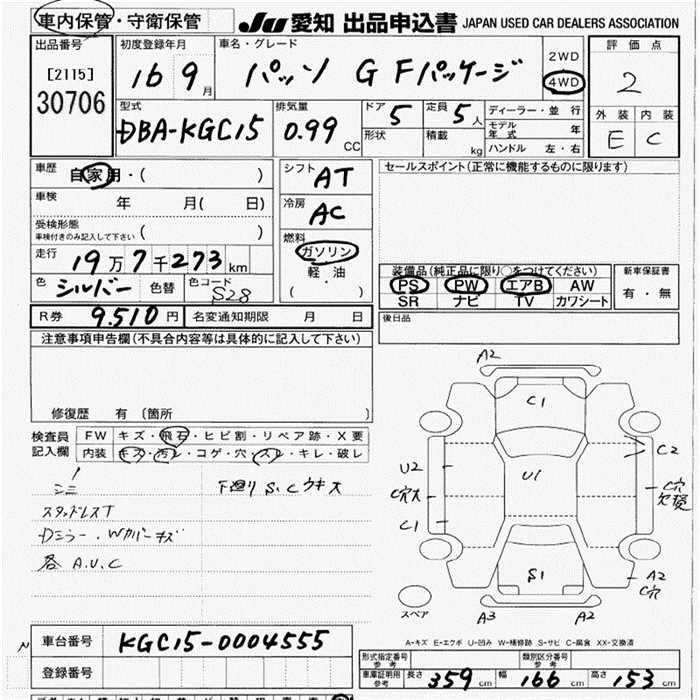 車内保管・守衛保管 JU 愛知 出品申込書 JAPAN USED CAR DEALERS ASSOCIATION
出品番号
[2115]
30706
初度登録年月
16 9月
車名・グレード
パッソ G Fパッケージ
2WD
4WD
評価点
2
外装 内装
E C
型式
DBA-KGC15
排気量
0.99 CC
ドア 5
形状
定員 5人
積載 kg
ディーラー・並行
モデル年式 年
ハンドル 左・右
車歴
自家用・( )
車検 年 月( 日)
受検形態
車検付きのみ記入して下さい ( )
走行
19万7千273km
色 シルバー 色替 色コード S28
シフト AT
冷房 AC
燃料
ガソリン
軽・油
( ・ )
セールスポイント(正常に機能するものに限ります)
装備品(純正品に限り○をつけてください)
PS PW エアB AW
SR ナビ TV カワシート
新車保証書
有・無
R券 9.510円 名変通知期限 月 日
後日品
注意事項申告欄(不具合内容等は具体的に記入して下さい)
修復歴 有(箇所 )
検査員記入欄
FW キズ・飛石・ヒビ割・リペア跡・X要
内装 キズ・汚レ・コゲ・穴・スレ・キレ・破レ
下廻り S.Cウキ大
スタッドレスT
Dミラー・Wカバーキズ
各 A.U.C
A2
C1
C2
U2
U1
C穴大
C穴
C1
S1
A2
C穴
A3
A2
スペア
A-キズ E-エクボ U-凹み W-補修跡 S-サビ C-腐食 XX-交換済
車台番号 KGC15-0004555
登録番号
形式指定番号
参考
類別区分番号
参考
車庫証明用
参考
長さ 359cm 幅 166cm 高さ 153cm